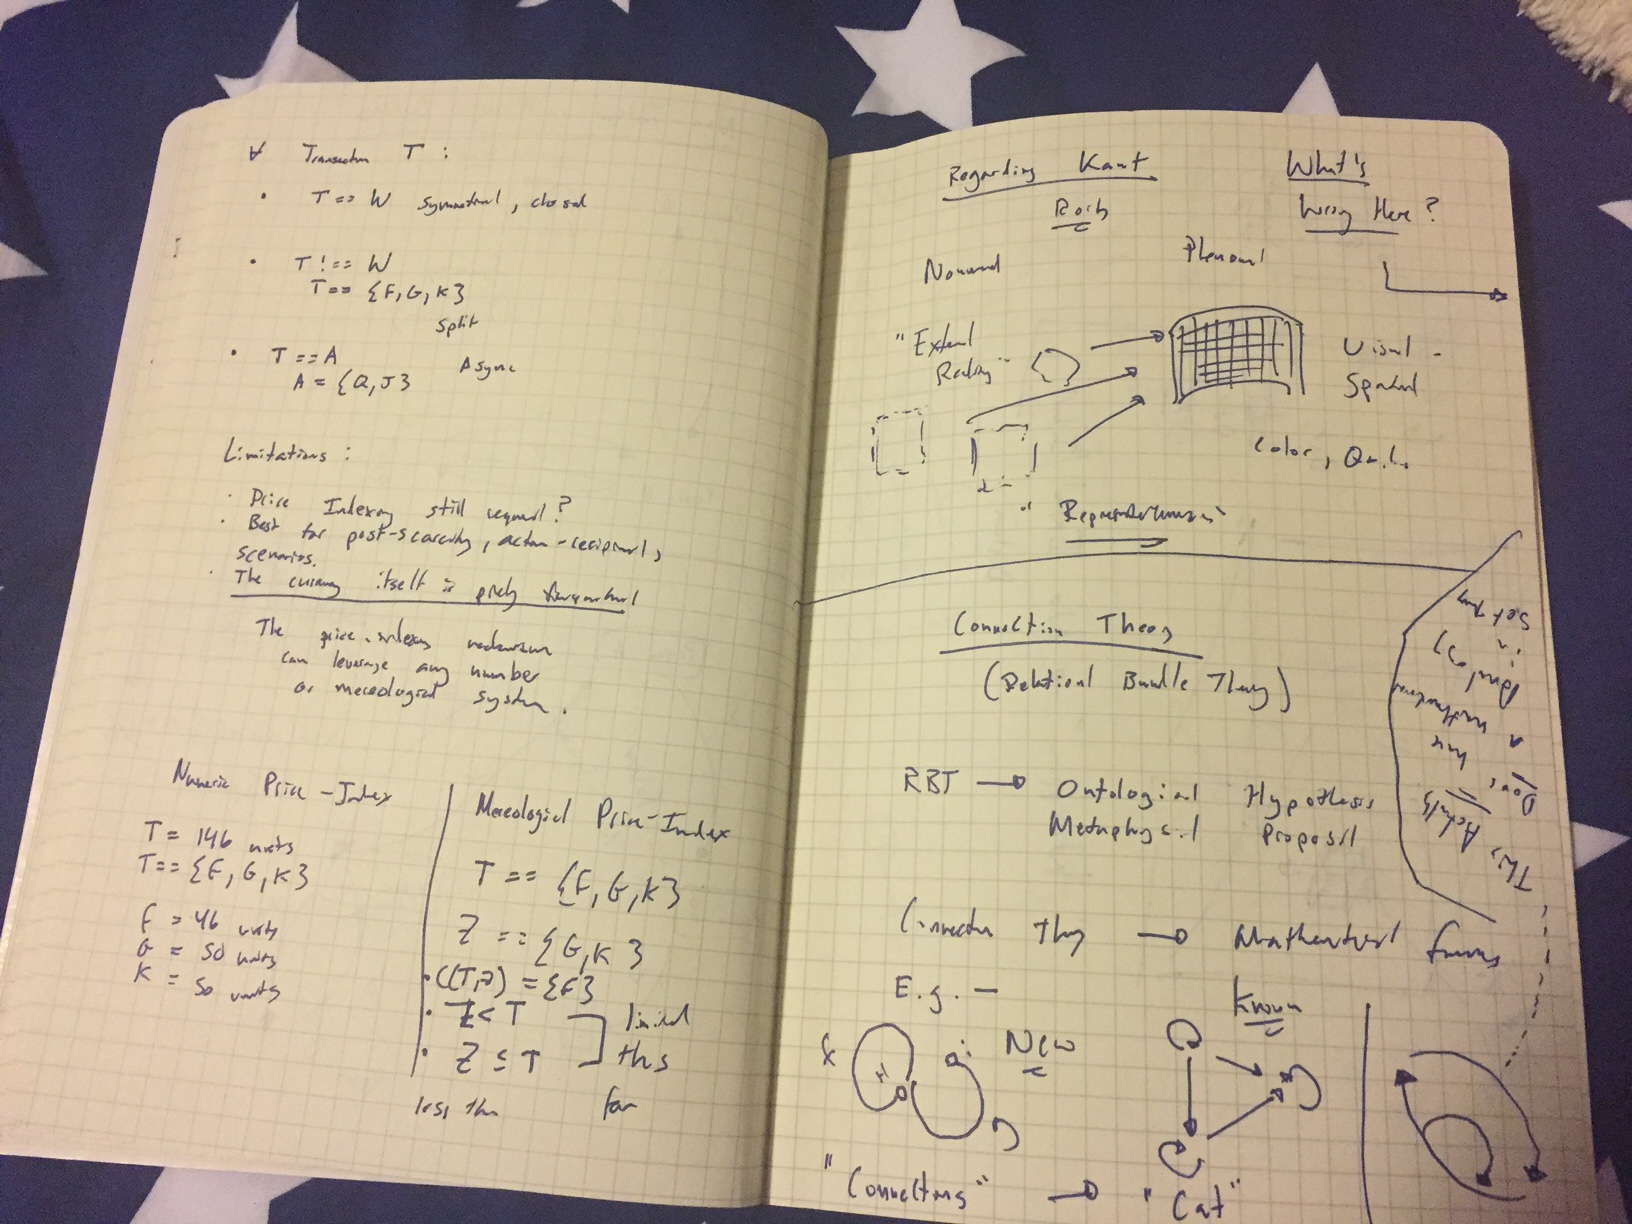 ∀ Transaction T :
• T == W symmetrical, closed
• T !== W
T == {F, G, K}
Split
• T == A
A = {Q, J}
Async
Limitations :
• Price Indexing still required?
• Best for post-scarcity, action-reciprocal,
scenarios.
• The currency itself is purely
The price-indexing mechanism
can leverage any number
or mereological system.
Numeric Price-Index
T = 146 units
T == {F, G, K}
F = 46 units
G = 50 units
K = 50 units
Mereological Price-Index
T == {F, G, K}
Z == {G, K}
• C(T,Z) = {F}
• Z < T
• Z ≤ T
limited
this
less than
far
Regarding Kant
What's
Wrong Here?
Noumenal
Phenomenal
"External
Reality"
Visual-
Spatial
Color, Qualia
Connection Theory
(Relational Bundle Theory)
RBT → Ontological Hypothesis
Metaphysical Proposal
Connection Theory → Mathematical
E.g. —
New
Known
"Connections" → "Cat"
This
Actually
Does
a
in
Set Theory